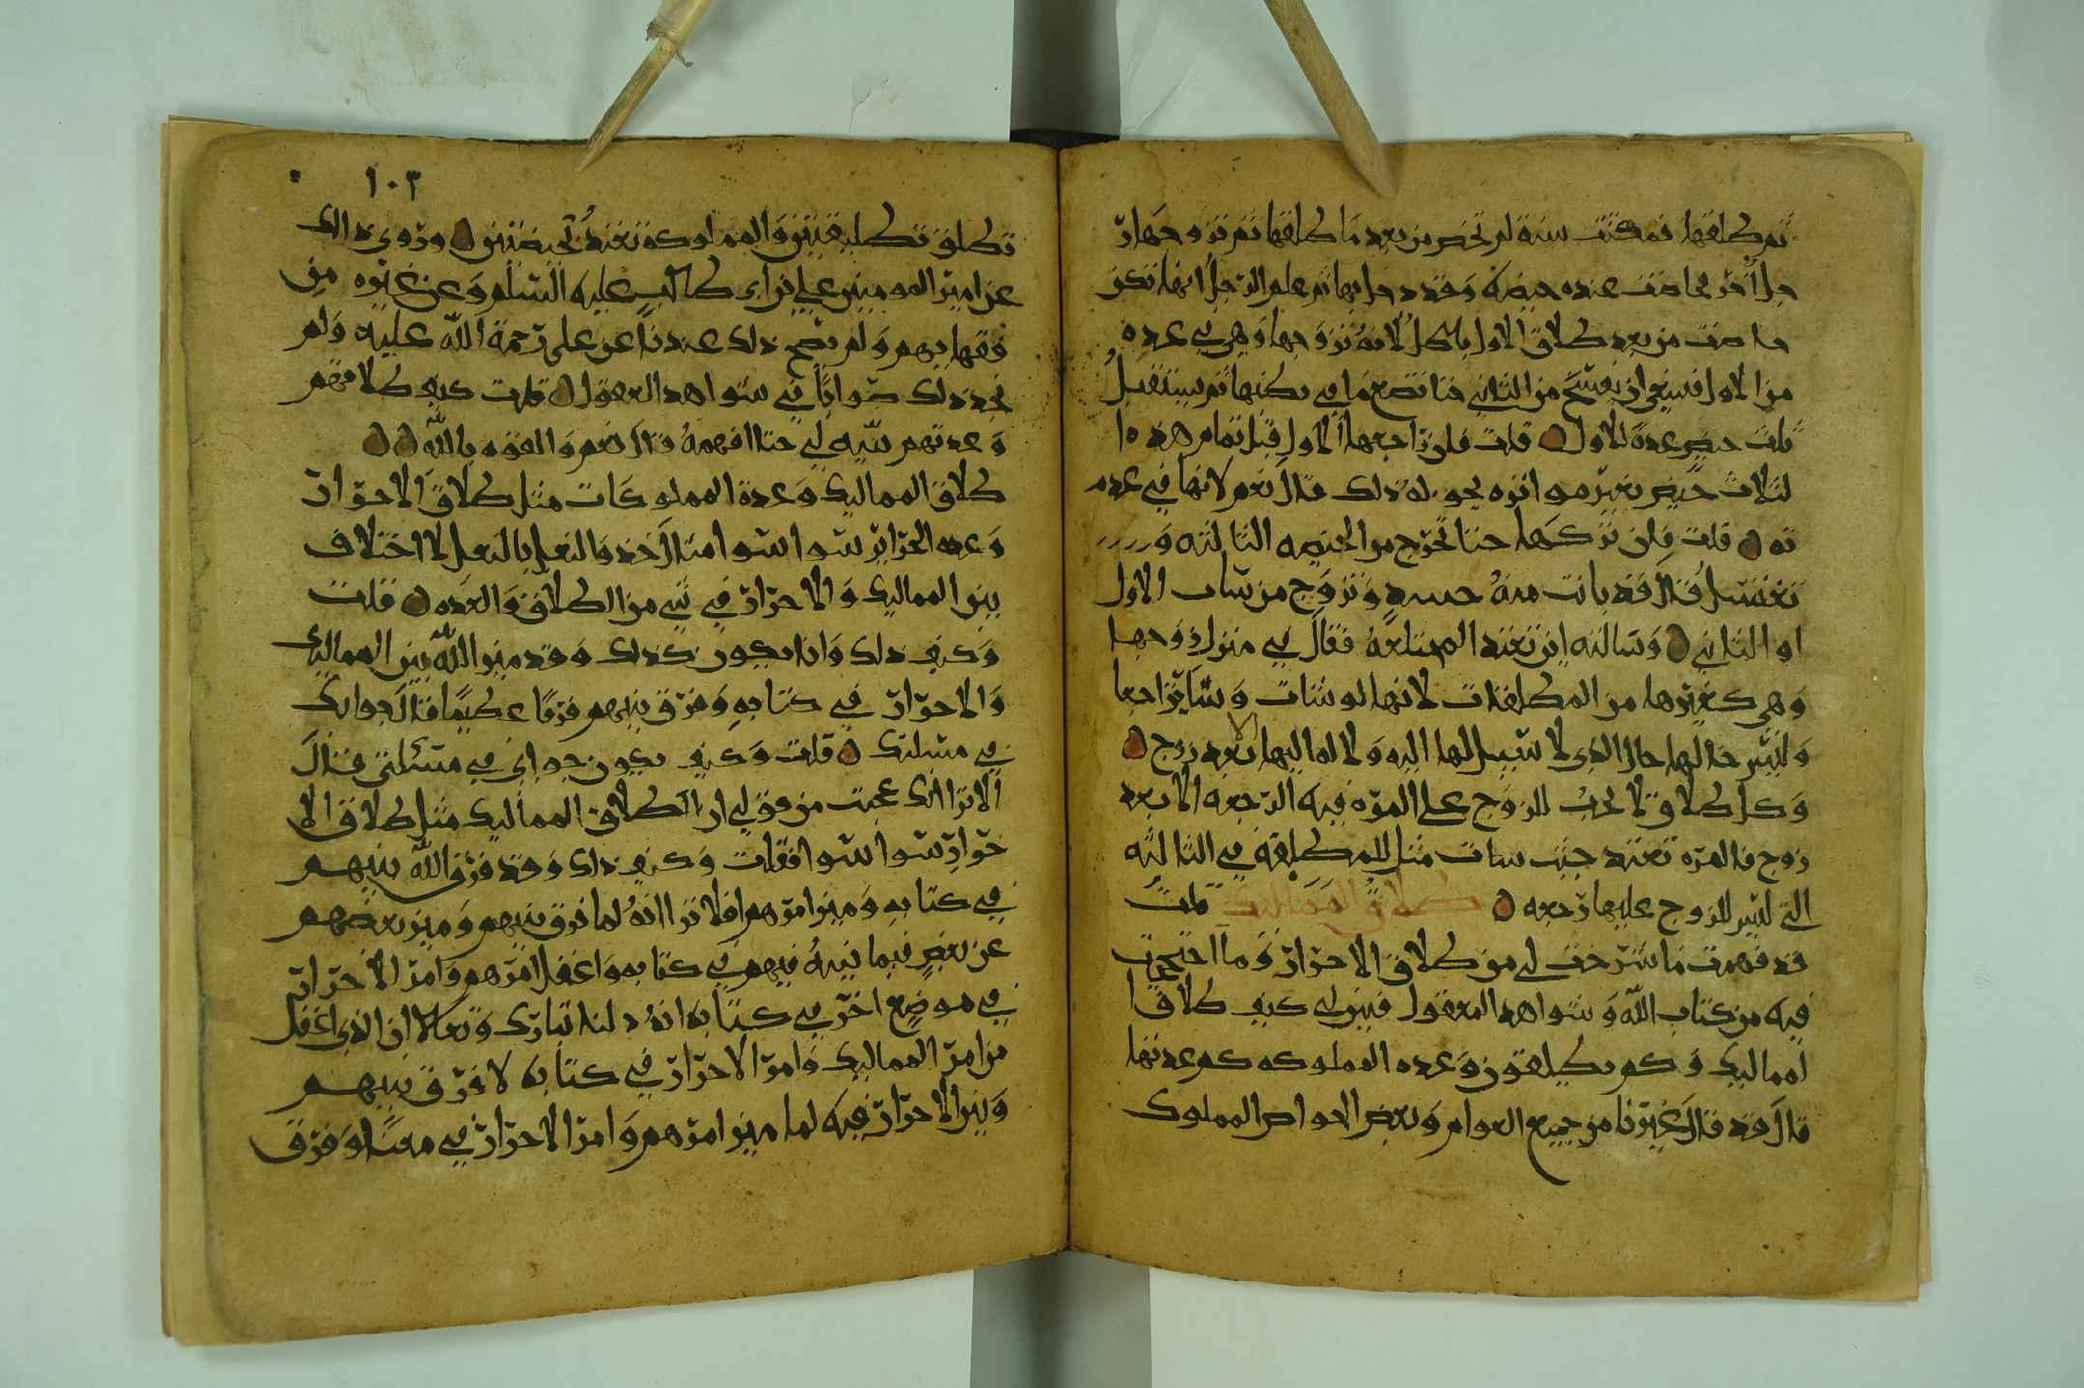 ثم طلقها فمكثت سنة لم تحض من بعد ما طلقها ثم تزوجها ر
جل آخر فحاضت عنده حيضة وقد دخل بها ثم علم الرجل انها لم تكن
حاضت من بعد طلاق الاول باطل لانه تزوجها وهي في عدة
من الاول فينبغي ان يفسخ من الثاني حتا تضع ما في بطنها ثم تستقبل
ثلث حيض عدة للاول قلت فان راجعها الاول قبل تمام هذه ا
لثلاث حيض بغير موامرة يجوز له ذلك قال نعم لانها في عد
ته قلت فان تركها حتا تخرج من الحيضه الثالثه و
تغتسل قال قد بانت منه وتزوج من شات الاول
او الثاني وسالته اين تعتد المختلعة فقال في منزل زوجها
وهي كغيرها من المطلقات لانها لو شات وشا تراجعا
وليس حالها حال الذي لا سبيل لها اليه ولا له اليها الا بعد زوج
وكل طلاق لا يجب للزوج على المرة فيه الرجعه الا بعد
زوج فالمرة تعتد حيث شات مثل المطلقة في الثالثه
التي ليس للزوج عليها رجعه طلاق المماليك قلت
قد فهمت ما شرحت لي من طلاق الاحرار وما احتججت
فيه من كتاب الله وشواهد المعقول فبين لي كيف طلاق ا
لمماليك وكم يطلقون وعده المملوكه كم عدتها
قال قد قال غيرنا من جميع العوام وبعض الخواص المملوك
١٠٣
تطلق تطليقتين والمملوكة تعتد بحيضتين وروي ذلك
عن امير المومنين علي بن ابي طالب عليه السلم وعن غيره من
فقهايهم ولم يصح ذلك عندنا عن علي رحمة الله عليه ولم
نجد ذلك صوابا في شواهد العقول قلت كيف طلاقهم
وعدتهم بينه لي حتا افهمه قال نعم والقوه بالله
طلاق المماليك وعدة المملوكات مثل طلاق الاحرار
وعده الحراير سوا سوا مثال حذو النعل بالنعل لا اختلاف
بين المماليك والاحرار في شي من الطلاق والعده قلت
وكيف ذلك وانا يكون كذلك وقد ميز الله بين المماليك
والاحرار في كتابه وفرق بينهم فرقا عظيما قال جوابك
في مسلتك قلت وكيف يكون جوابي في مسئلتي قال
الا ترا انك عجبت من قولي ان طلاق المماليك مثل طلاق الا
حرار سوا سوا فقلت وكيف ذلك وقد فرق الله بينهم
في كتابه وميز امرهم افلا ترا انه لما فرق بينهم وميز بعضهم
عن بعض فيما بينه فيهم في كتابه واغفل امرهم وامر الاحرار
في موضع اخر في كتابه انه دلنا تبارك وتعالا ان الذي اغفل
من امر المماليك وامر الاحرار في كتابه لا فرق بينهم
وبين الاحرار فيه لما ميز امرهم وامر الاحرار في معنا وفرق